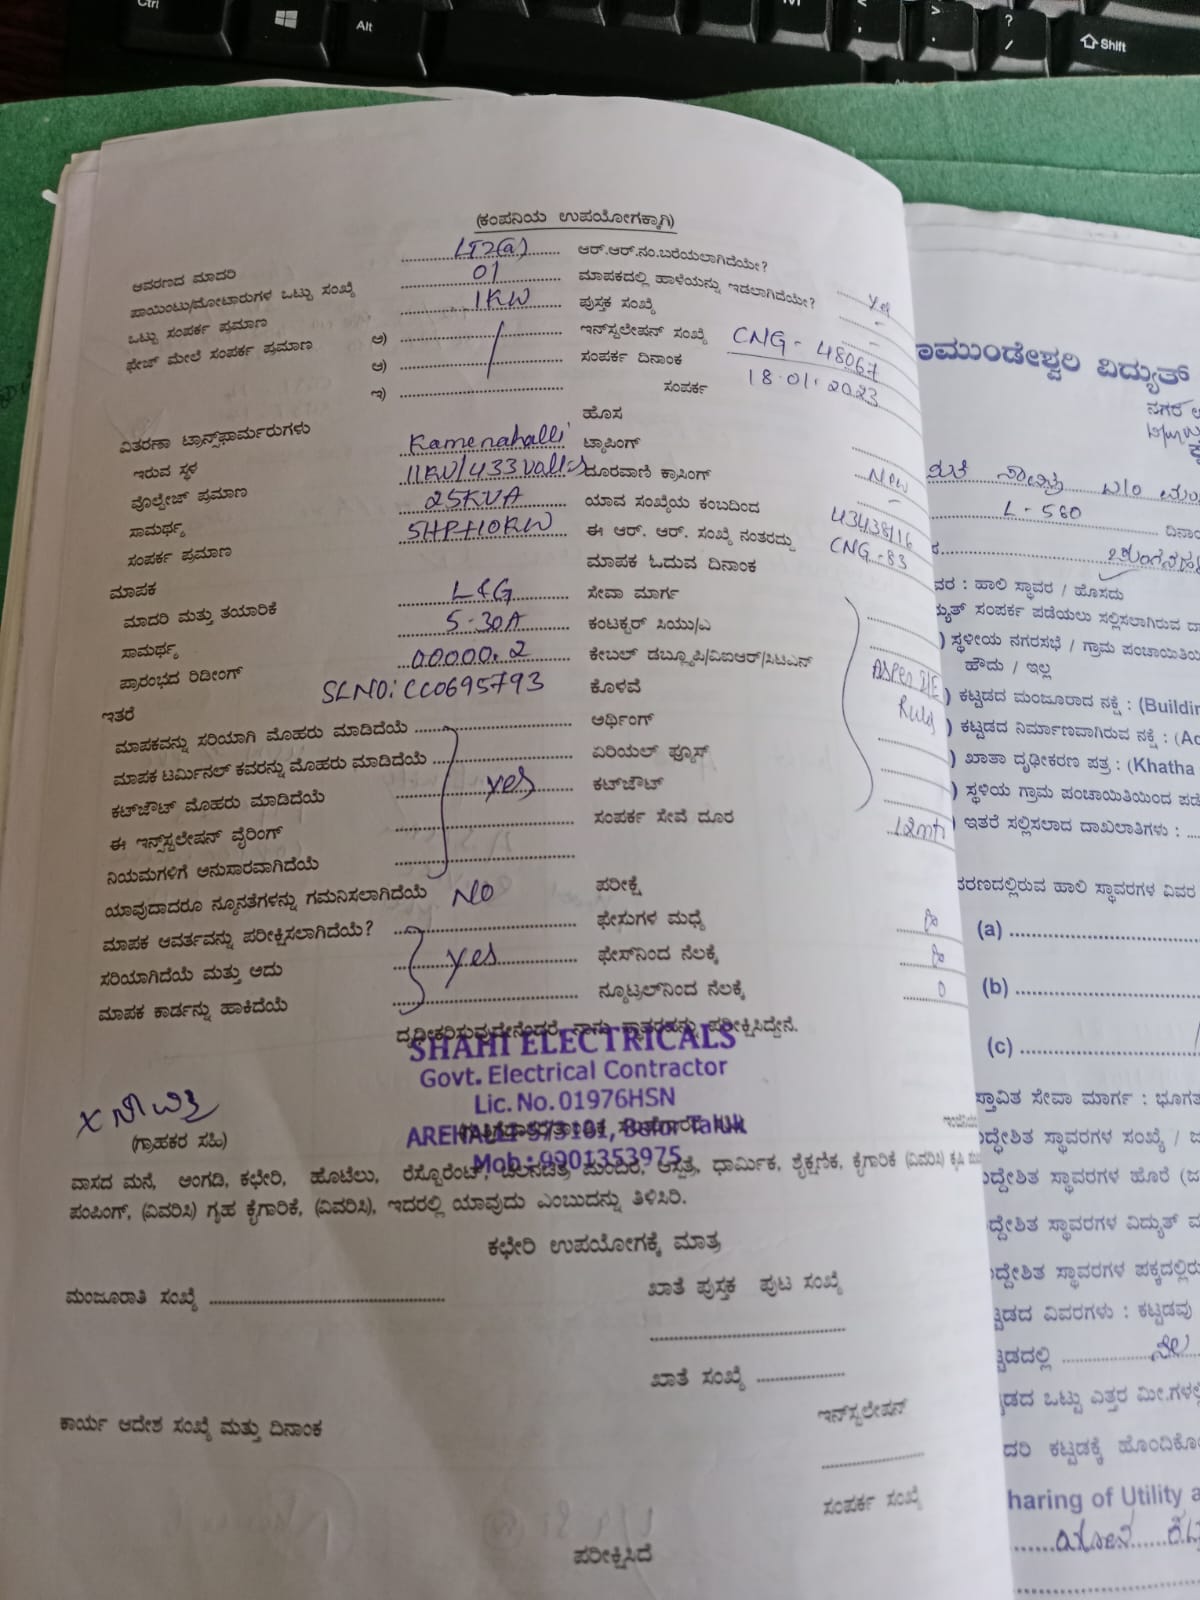 Ctrl
Alt
Shift
(ಕಂಪನಿಯ ಉಪಯೋಗಕ್ಕಾಗಿ)
ಆವರಣದ ಮಾದರಿ LT2(a) ಆರ್.ಆರ್.ನಂ.ಬರೆಯಲಾಗಿದೆಯೇ? Yes
ಪಾಯಿಂಟು/ಮೋಟಾರುಗಳ ಒಟ್ಟು ಸಂಖ್ಯೆ 01 ಮಾಪಕದಲ್ಲಿ ಹಾಳೆಯನ್ನು ಇಡಲಾಗಿದೆಯೇ? -
ಒಟ್ಟು ಸಂಪರ್ಕ ಪ್ರಮಾಣ 1KW ಪುಸ್ತಕ ಸಂಖ್ಯೆ -
ಫೇಜ್ ಮೇಲೆ ಸಂಪರ್ಕ ಪ್ರಮಾಣ ಅ) ಇನ್‌ಸ್ಟಲೇಷನ್ ಸಂಖ್ಯೆ CNG - 48067
ಆ) ಸಂಪರ್ಕ ದಿನಾಂಕ 18.01.2023
ಇ) ಸಂಪರ್ಕ
ಹೊಸ
ವಿತರಣಾ ಟ್ರಾನ್ಸ್‌ಫಾರ್ಮರುಗಳು
ಇರುವ ಸ್ಥಳ Kamenahalli ಟ್ಯಾಪಿಂಗ್ New
ವೊಲ್ಟೇಜ್ ಪ್ರಮಾಣ 11KV/433volts ದೂರವಾಣಿ ಕ್ರಾಸಿಂಗ್ -
ಸಾಮರ್ಥ್ಯ 25KVA ಯಾವ ಸಂಖ್ಯೆಯ ಕಂಬದಿಂದ 43438/16
ಸಂಪರ್ಕ ಪ್ರಮಾಣ 5HP+10KW ಈ ಆರ್. ಆರ್. ಸಂಖ್ಯೆ ನಂತರದ್ದು CNG-83
ಮಾಪಕ ಮಾಪಕ ಓದುವ ದಿನಾಂಕ
ಮಾದರಿ ಮತ್ತು ತಯಾರಿಕೆ L&G ಸೇವಾ ಮಾರ್ಗ
ಸಾಮರ್ಥ್ಯ 5-30A ಕಂಟಕ್ಟರ್ ಸಿಯು/ಎ
ಪ್ರಾರಂಭದ ರಿಡೀಂಗ್ 00000.2 ಕೇಬಲ್ ಡಬ್ಲ್ಯೂಪಿ/ವಿಐಆರ್/ಸಿಟಿಎನ್
ಇತರೆ SLNO: CC0695793 ಕೊಳವೆ Rules
ಮಾಪಕವನ್ನು ಸರಿಯಾಗಿ ಮೊಹರು ಮಾಡಿದೆಯೆ ಅರ್ಥಿಂಗ್
ಮಾಪಕ ಟರ್ಮಿನಲ್ ಕವರನ್ನು ಮೊಹರು ಮಾಡಿದೆಯೆ ಏರಿಯಲ್ ಫ್ಯೂಸ್
ಕಟ್‌ಔಟ್ ಮೊಹರು ಮಾಡಿದೆಯೆ yes ಕಟ್‌ಔಟ್
ಈ ಇನ್‌ಸ್ಟಲೇಷನ್ ವೈರಿಂಗ್ ಸಂಪರ್ಕ ಸೇವೆ ದೂರ 12mts
ನಿಯಮಗಳಿಗೆ ಅನುಸಾರವಾಗಿದೆಯೆ
ಯಾವುದಾದರೂ ನ್ಯೂನತೆಗಳನ್ನು ಗಮನಿಸಲಾಗಿದೆಯೆ NO ಪರೀಕ್ಷೆ
ಮಾಪಕ ಆವರ್ತವನ್ನು ಪರೀಕ್ಷಿಸಲಾಗಿದೆಯೆ? ಫೇಸುಗಳ ಮಧ್ಯೆ
ಸರಿಯಾಗಿದೆಯೆ ಮತ್ತು ಅದು yes ಫೇಸ್‌ನಿಂದ ನೆಲಕ್ಕೆ
ಮಾಪಕ ಕಾರ್ಡನ್ನು ಹಾಕಿದೆಯೆ ನ್ಯೂಟ್ರಲ್‌ನಿಂದ ನೆಲಕ್ಕೆ 0
ದೃಢೀಕರಿಸುವುದೇನೆಂದರೆ ನಾನು ಸ್ಥಾವರವನ್ನು ಪರೀಕ್ಷಿಸಿದ್ದೇನೆ.
SHAHI ELECTRICALS
Govt. Electrical Contractor
Lic. No. 01976HSN
AREHALLI-573101, Belur Taluk
Mob: 9901353975
(ಗ್ರಾಹಕರ ಸಹಿ)
ವಾಸದ ಮನೆ, ಅಂಗಡಿ, ಕಛೇರಿ, ಹೊಟೆಲು, ರೆಸ್ಟೊರೆಂಟ್, ಚಲನಚಿತ್ರ ಮಂದಿರ, ಆಸ್ಪತ್ರೆ, ಧಾರ್ಮಿಕ, ಶೈಕ್ಷಣಿಕ, ಕೈಗಾರಿಕೆ (ವಿವರಿಸಿ) ಕೃಷಿ
ಪಂಪಿಂಗ್, (ವಿವರಿಸಿ) ಗೃಹ ಕೈಗಾರಿಕೆ, (ವಿವರಿಸಿ), ಇದರಲ್ಲಿ ಯಾವುದು ಎಂಬುದನ್ನು ತಿಳಿಸಿರಿ.
ಕಛೇರಿ ಉಪಯೋಗಕ್ಕೆ ಮಾತ್ರ
ಮಂಜೂರಾತಿ ಸಂಖ್ಯೆ ಖಾತೆ ಪುಸ್ತಕ ಪುಟ ಸಂಖ್ಯೆ
ಖಾತೆ ಸಂಖ್ಯೆ
ಕಾರ್ಯ ಆದೇಶ ಸಂಖ್ಯೆ ಮತ್ತು ದಿನಾಂಕ ಇನ್‌ಸ್ಟಲೇಷನ್
ಸಂಪರ್ಕ ಸಂಖ್ಯೆ
ಪರೀಕ್ಷಿಸಿದೆ
ಾಮುಂಡೇಶ್ವರಿ ವಿದ್ಯುತ್
ನಗರ
L-560
ದಿನಾಂ
ವರ : ಹಾಲಿ ಸ್ಥಾವರ / ಹೊಸದು
್ಯುತ್ ಸಂಪರ್ಕ ಪಡೆಯಲು ಸಲ್ಲಿಸಲಾಗಿರುವ ದಾ
) ಸ್ಥಳೀಯ ನಗರಸಭೆ / ಗ್ರಾಮ ಪಂಚಾಯಿತಿಯಿ
ಹೌದು / ಇಲ್ಲ
) ಕಟ್ಟಡದ ಮಂಜೂರಾದ ನಕ್ಷೆ : (Buildin
) ಕಟ್ಟಡದ ನಿರ್ಮಾಣವಾಗಿರುವ ನಕ್ಷೆ : (Ac
) ಖಾತಾ ದೃಢೀಕರಣ ಪತ್ರ : (Khatha
) ಸ್ಥಳಿಯ ಗ್ರಾಮ ಪಂಚಾಯಿತಿಯಿಂದ ಪಡೆ
) ಇತರೆ ಸಲ್ಲಿಸಲಾದ ದಾಖಲಾತಿಗಳು :
ವರಣದಲ್ಲಿರುವ ಹಾಲಿ ಸ್ಥಾವರಗಳ ವಿವರ
(a)
(b)
(c)
ಸ್ತಾವಿತ ಸೇವಾ ಮಾರ್ಗ : ಭೂಗತ
ದ್ದೇಶಿತ ಸ್ಥಾವರಗಳ ಸಂಖ್ಯೆ /
ುದ್ದೇಶಿತ ಸ್ಥಾವರಗಳ ಹೊರೆ
ದ್ದೇಶಿತ ಸ್ಥಾವರಗಳ ವಿದ್ಯುತ್
ುದ್ದೇಶಿತ ಸ್ಥಾವರಗಳ ಪಕ್ಕದಲ್ಲಿರು
ಟ್ಟಡದ ವಿವರಗಳು : ಕಟ್ಟಡವು
ಟ್ಟಡದಲ್ಲಿ ನೆಲ
ಟ್ಟಡದ ಒಟ್ಟು ಎತ್ತರ ಮೀ.ಗಳಲ್ಲಿ
ದರಿ ಕಟ್ಟಡಕ್ಕೆ ಹೊಂದಿಕೊಂ
haring of Utility a